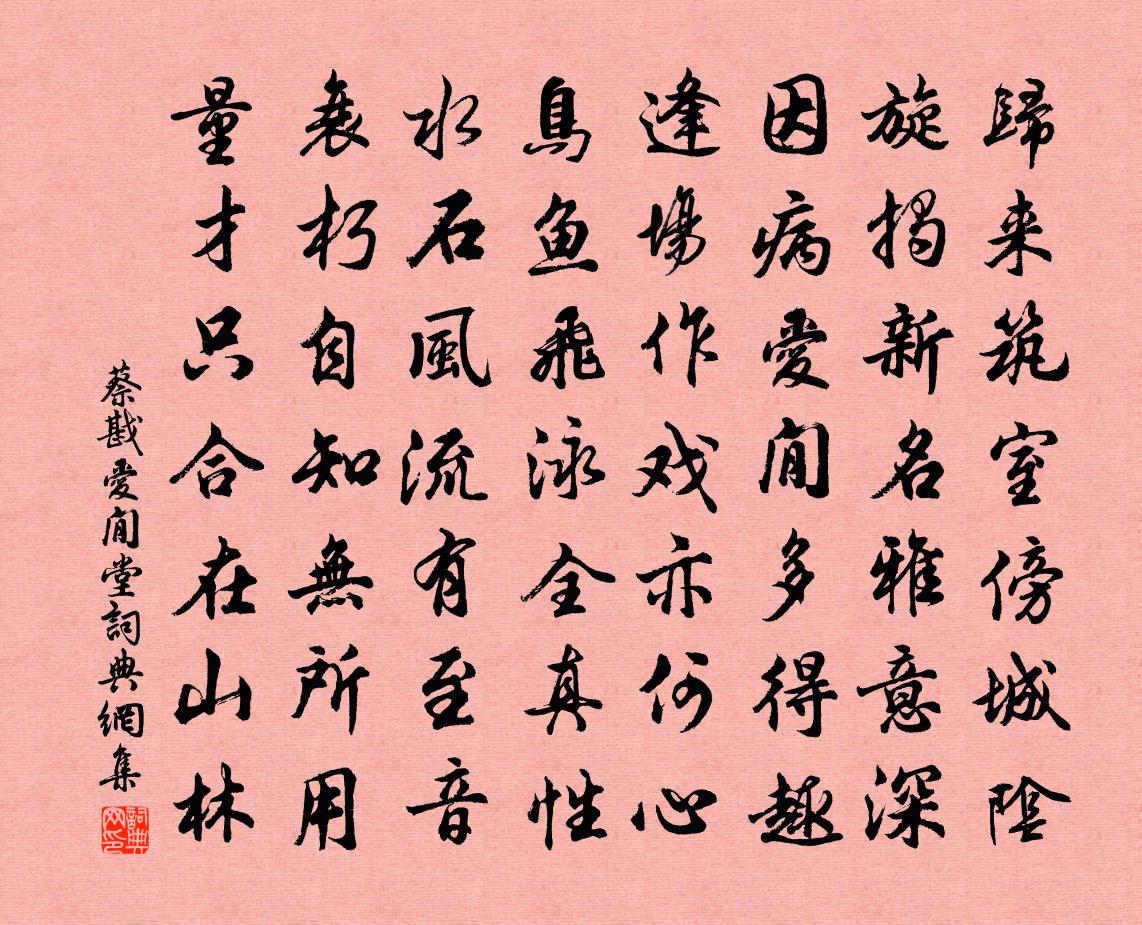 歸来筑室傍城陰
旋揭新名雅意深
因病愛閒多得趣
逢場作戏亦何心
鳥魚飛泳全真性
水石風流有至音
衰朽自知無所用
量才只合在山林
蔡戡愛閒堂詞典網集
詞典网印